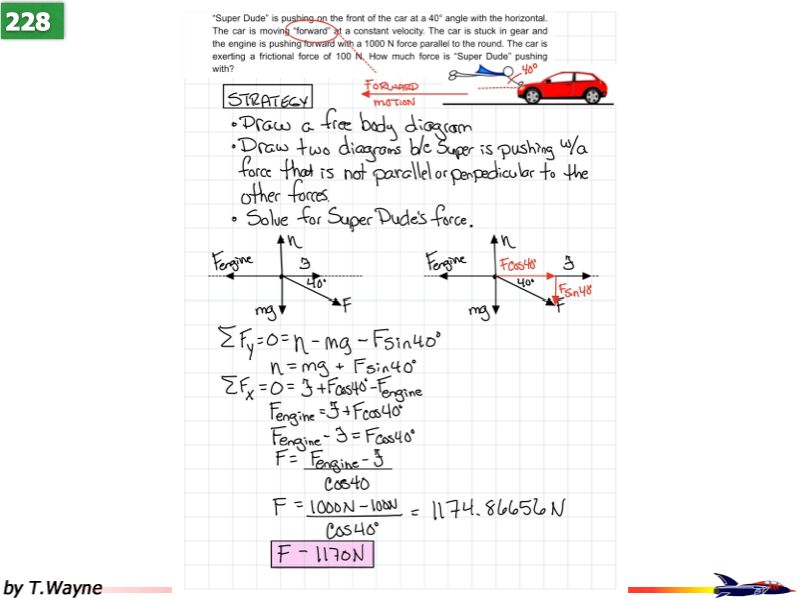 228
"Super Dude" is pushing on the front of the car at a 40° angle with the horizontal.
The car is moving "forward" at a constant velocity. The car is stuck in gear and
the engine is pushing forward with a 1000 N force parallel to the round. The car is
exerting a frictional force of 100 N. How much force is "Super Dude" pushing
with?
40°
FORWARD
MOTION
STRATEGY
• Draw a free body diagram
• Draw two diagrams b/c Super is pushing w/a
force that is not parallel or perpedicular to the
other forces.
• Solve for Super Dude's force.
n
Fengine
ℑ
40°
F
mg
n
Fengine
Fcos40°
ℑ
40°
Fsin40
F
mg
ΣFy=0=n-mg-Fsin40°
n=mg+Fsin40°
ΣFx=0=ℑ+Fcos40°-Fengine
Fengine=ℑ+Fcos40°
Fengine-ℑ=Fcos40°
F=Fengine-ℑ
cos40
F=1000N-100N=1174.86656N
cos40°
F-1170N
by T.Wayne